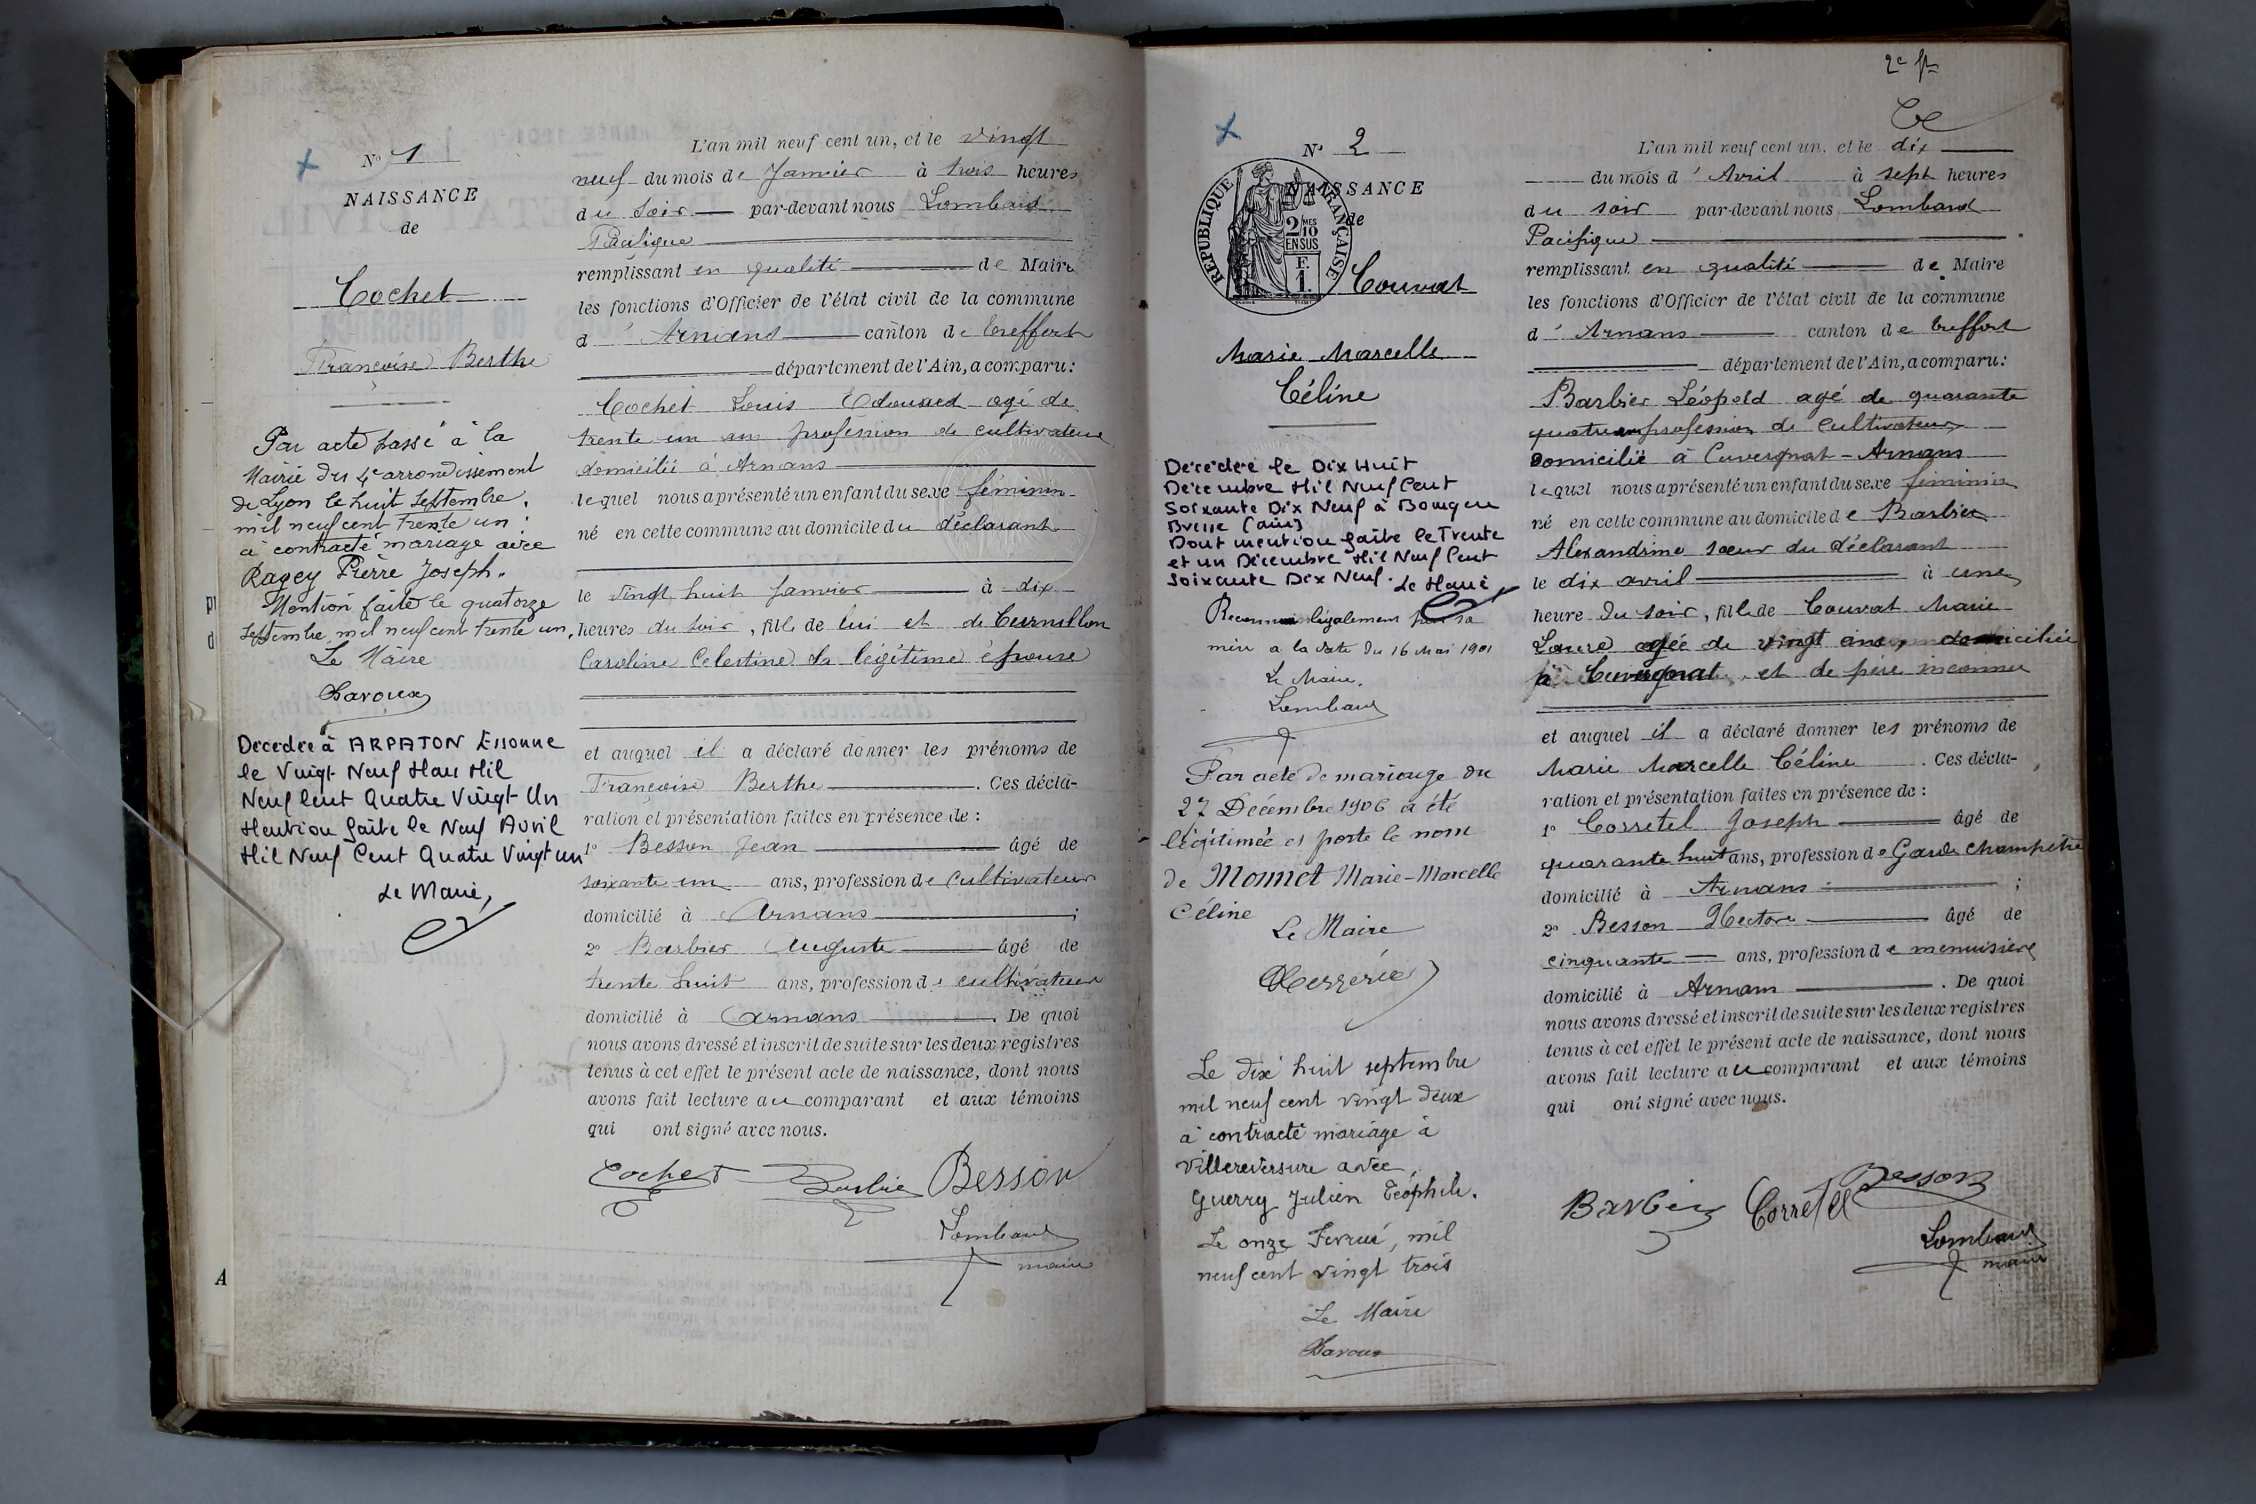 N° 1
NAISSANCE
de
Cochet
Françoise Berthe
Par acte passé à la
Mairie du 4e arrondissement
de Lyon le huit septembre
mil neuf cent trente un
a contracté mariage avec
Ragey Pierre Joseph.
Mention faite le quatorze
septembre mil neuf cent trente un.
Le Maire
Décédée à ARPATON Essonne
le Vingt Neuf Mars Mil
Neuf Cent Quatre Vingt Un
Mention faite le Neuf Avril
Mil Neuf Cent Quatre Vingt un
Le Maire,
L'an mil neuf cent un, et le vingt
neuf du mois de Janvier à trois heures
du soir par-devant nous Lombard
Pacifique
remplissant en qualité de Maire
les fonctions d'Officier de l'état civil de la commune
d' Arnans canton de Treffort
département de l'Ain, a comparu:
Cochet Louis Edouard agé de
trente un an profession de cultivateur
domicilié à Arnans
lequel nous a présenté un enfant du sexe féminin
né en cette commune au domicile du déclarant
le vingt huit Janvier à dix
heures du soir, fille de lui et de
Caroline Celestine sa légitime épouse
et auquel il a déclaré donner les prénoms de
Françoise Berthe. Ces décla-
ration et présentation faites en présence de :
1° Besson Jean âgé de
soixante un ans, profession de cultivateur
domicilié à Arnans ;
2° Barbier Auguste âgé de
trente huit ans, profession de cultivateur
domicilié à Arnans. De quoi
nous avons dressé et inscrit de suite sur les deux registres
tenus à cet effet le présent acte de naissance, dont nous
avons fait lecture au comparant et aux témoins
qui ont signé avec nous.
Cochet Barbier Besson
Lombard
maire
2e
N° 2
NAISSANCE
de
REPUBLIQUE FRANÇAISE
2 MES
10
EN SUS
F.
1.
Couvat
Marie Marcelle
Céline
Décédée le Dix Huit
Décembre Mil Neuf Cent
Soixante Dix Neuf à Bourg en
Bresse (ain)
Dont mention faite le Trente
et un Décembre Mil Neuf Cent
Soixante Dix Neuf. Le Maire
Reconnue légalement par sa
mère a la date du 16 Mai 1901
Le Maire,
Lombard
Par acte de mariage du
27 Décembre 1906 a été
légitimée et porte le nom
de Monnet Marie-Marcelle
Céline
Le Maire
Le dix huit septembre
mil neuf cent vingt deux
a contracté mariage à
Villereversure avec
Guerry Julien Téophile.
Le onze Fevrier, mil
neuf cent vingt trois
Le Maire
L'an mil neuf cent un, et le dix
du mois d'Avril à sept heures
du soir par-devant nous Lombard
Pacifique
remplissant en qualité de Maire
les fonctions d'Officier de l'état civil de la commune
d' Arnans canton de Treffort
département de l'Ain, a comparu:
Barbier Léopold agé de quarante
quatre ans profession de Cultivateur
Domicilié à Cuvergnat - Arnans
lequel nous a présenté un enfant du sexe féminin
né en cette commune au domicile de Barbier
Alexandrine sœur du déclarant
le dix avril à une
heure du soir, fille de Couvat Marie
Laure agée de vingt ans, domiciliée
à Cuvergnat et de père inconnu
et auquel il a déclaré donner les prénoms de
Marie Marcelle Céline. Ces décla-
ration et présentation faites en présence de :
1° Corretel Joseph âgé de
quarante huit ans, profession de Garde champêtre
domicilié à Arnans ;
2° Besson Hectore âgé de
cinquante ans, profession de menuisier
domicilié à Arnans. De quoi
nous avons dressé et inscrit de suite sur les deux registres
tenus à cet effet le présent acte de naissance, dont nous
avons fait lecture au comparant et aux témoins
qui ont signé avec nous.
Barbier Corretel Besson
Lombard
maire